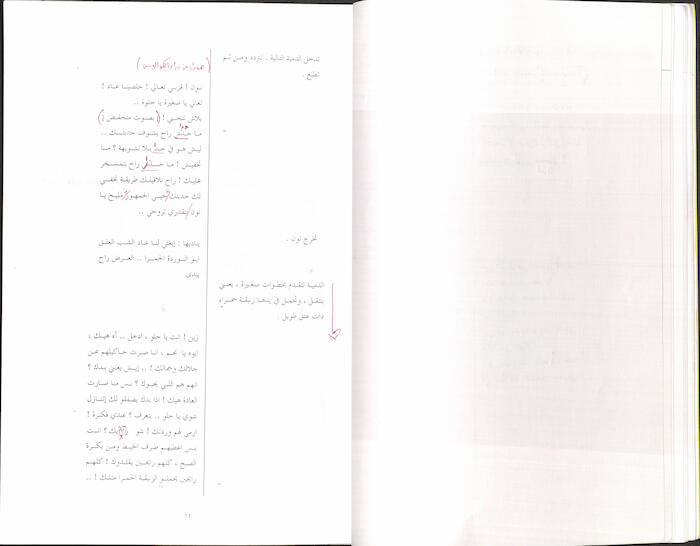 تدخل الدمية التالية . تتردد ومن ثم
تطيع .
(صوت من وراء الكواليس)
نون ! قربي تعالي ! خلصينا عاد !
تعالي يا صغيرة يا حلوة ..
بلاش تتخبي ! ( بصوت منخفض )
ما حدش راح يشوف حدبتك ..
ليش هو في حد بلا تشويهة ؟ ما
تخفيش ! ما حدش راح يتمسخر
عليك ! راح نلاقيلك طريقة نخفي
لك حدبتك حيي الجمهور مليح يا
نون بتقدري تروحي ..
تخرج نون .
يناديها : إبعثي لنا عاد الشب العلق
ابو الوردة الحمرا .. العرض راح
يبدى
الدمية تتقدم بخطوات صغيرة ، يعني
بتثقل ، وتحمل في يدها زنبقة حمراء
ذات عنق طويل .
زين ! انت يا حلو ، ادخل .. آه هيك ،
ايوه يا نجم ، انا صرت حاكيلهم عن
جلالك وجمالك ! .. إيش يعني بدك ؟
انهم هم اللي يحيوك ؟ بس ما صارت
العادة هيك ! اذا بدك يصفقو لك إتنازل
شوي يا حلو .. بتعرف ؟ عندي فكرة !
ارمي لهم وردتك ! شو بك ؟ انت
بس اعطيهم طرف الخيط ومن بكرة
الصبح ، كلهم رايحين يقلدوك ! كلهم
رايحين يحملو الزنبقة الحمرا مثلك ! ..
١٤